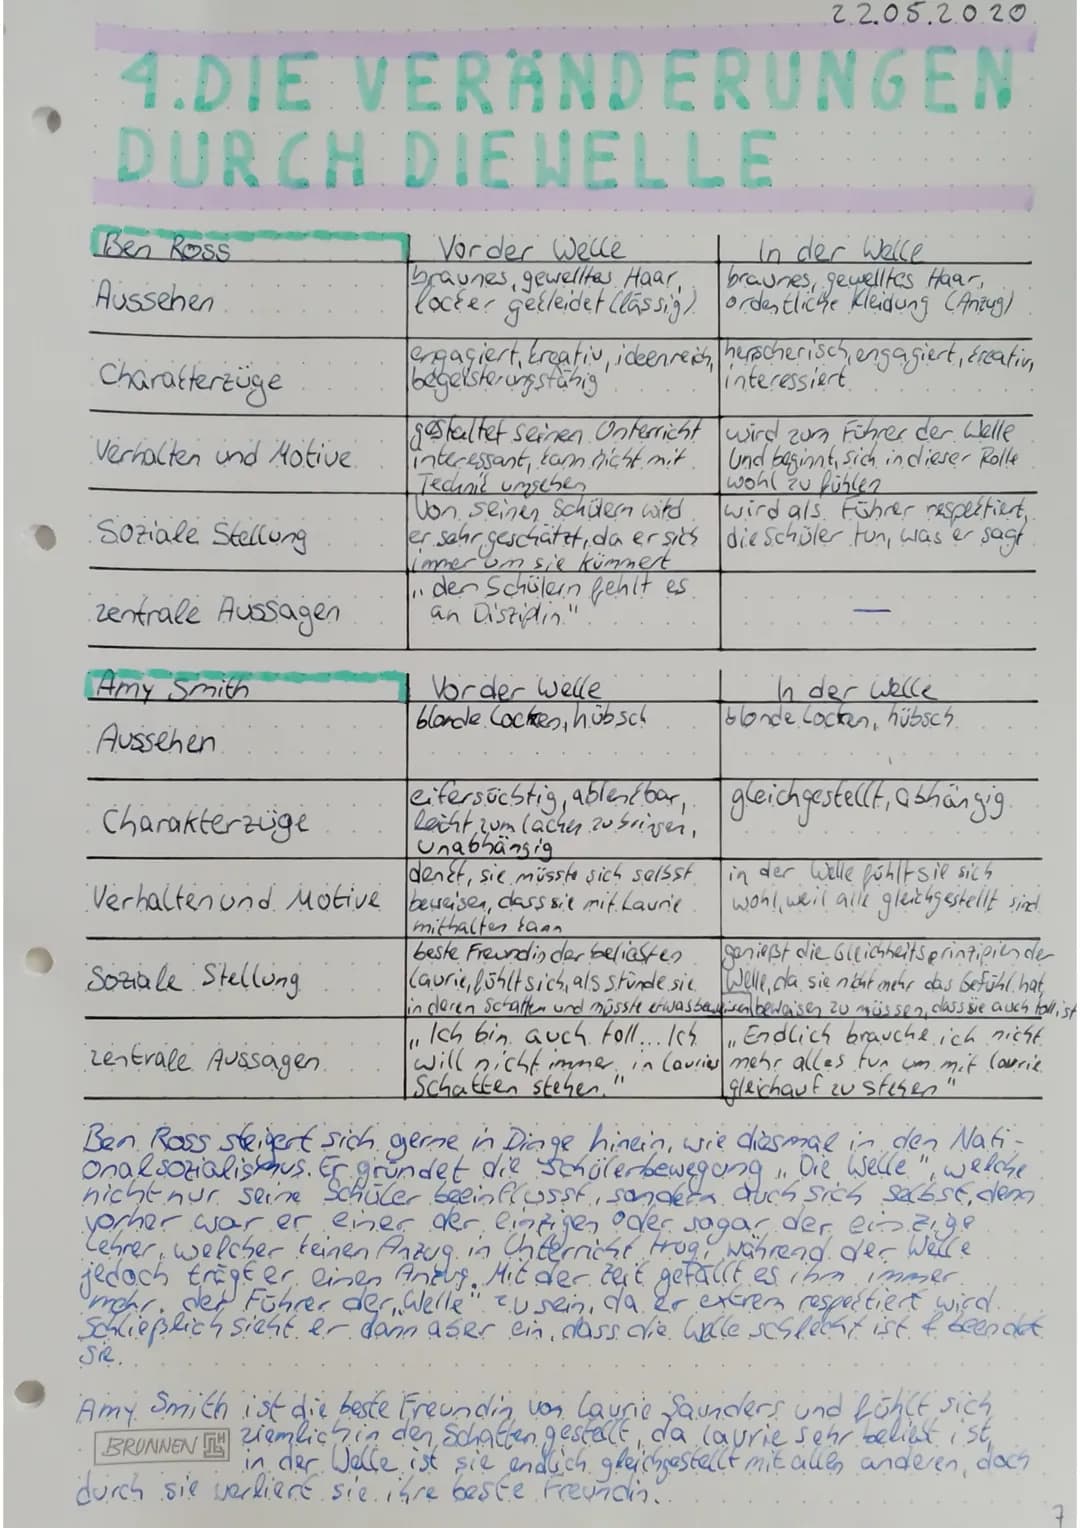 22.05.2020
4. DIE VERÄNDERUNGEN
DURCH DIE WELLE
Ben Ross | Vor der Welle | In der Welle
Aussehen | braunes, gewelltes Haar, | braunes, gewelltes Haar,
locker gekleidet (lässig) | ordentliche Kleidung (Anzug)
Charakterzüge | engagiert, kreativ, ideenreich, | herrscherisch, engagiert, kreativ,
begeisterungsfähig | interessiert
Verhalten und Motive | gestaltet seinen Unterricht | wird zum Führer der Welle
interessant, kann nicht mit | und beginnt, sich in dieser Rolle
Technik umgehen | wohl zu fühlen
Soziale Stellung | Von seinen Schülern wird | wird als Führer respektiert,
er sehr geschätzt, da er sich | die Schüler tun, was er sagt
immer um sie kümmert
zentrale Aussagen | „den Schülern fehlt es | —
an Disziplin."
Amy Smith | Vor der Welle | In der Welle
Aussehen | blonde Locken, hübsch | blonde Locken, hübsch
Charakterzüge | eifersüchtig, ablenkbar, | gleichgestellt, abhängig
leicht zum lachen zu bringen,
unabhängig
Verhalten und Motive | denkt, sie müsste sich selbst | in der Welle fühlt sie sich
beweisen, dass sie mit Laurie | wohl, weil alle gleichgestellt sind
mithalten kann
Soziale Stellung | beste Freundin der beliebten | genießt die Gleichheitsprinzipien der
Laurie, fühlt sich, als stünde sie | Welle, da sie nicht mehr das Gefühl hat,
in deren Schatten und müsste etwas beweisen | beweisen zu müssen, dass sie auch toll ist
zentrale Aussagen | „Ich bin auch toll... Ich | „Endlich brauche ich nicht
will nicht immer in Lauries | mehr alles tun um mit Laurie
Schatten stehen." | gleichauf zu stehen"
Ben Ross steigert sich gerne in Dinge hinein, wie diesmal in den Nati-
onalsozialismus. Er gründet die Schülerbewegung „Die Welle", welche
nicht nur seine Schüler beeinflusst, sondern auch sich selbst, denn
vorher war er einer der einzigen oder sogar der einzige
Lehrer, welcher keinen Anzug in Unterricht trug, während der Welle
jedoch trägt er einen Anzug. Mit der Zeit gefällt es ihm immer
mehr, der Führer der „Welle" zu sein, da er extrem respektiert wird.
Schließlich sieht er dann aber ein, dass die Welle schlecht ist & beendet
sie.
Amy Smith ist die beste Freundin von Laurie Saunders und fühlt sich
ziemlich in den Schatten gestellt, da Laurie sehr beliebt ist,
BRUNNEN
in der Welle ist sie endlich gleichgestellt mit allen anderen, doch
durch sie verliert sie ihre beste Freundin.
7